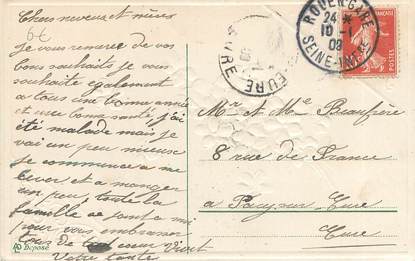 Chers neveux et nièces
6€
je vous remercie de vos
bons souhaits je vous
souhaite également
a tous une bonne année
et une bonne santé j'ai
été malade mais je
vai un peu mieux
je commence a me
lever et a manger
un peu toute la
famille se joint a moi
pour vous embrasser
tous de coeur
Votre tante
Déposé
ROUEN-GARE
24
10-1
08
SEINE-INF
EURE
EURE
Mr et Me Beaufrère
8 rue de France
a Pacy sur Eure
Eure